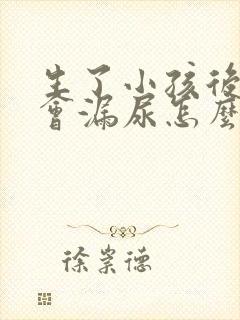 生了小孩後
會漏尿怎麼
徐崇德